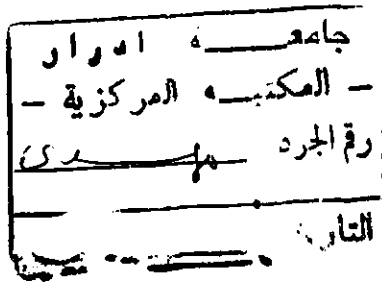 جامعة ادرار
- المكتبه المركزية -
رقم الجرد
التاريخ